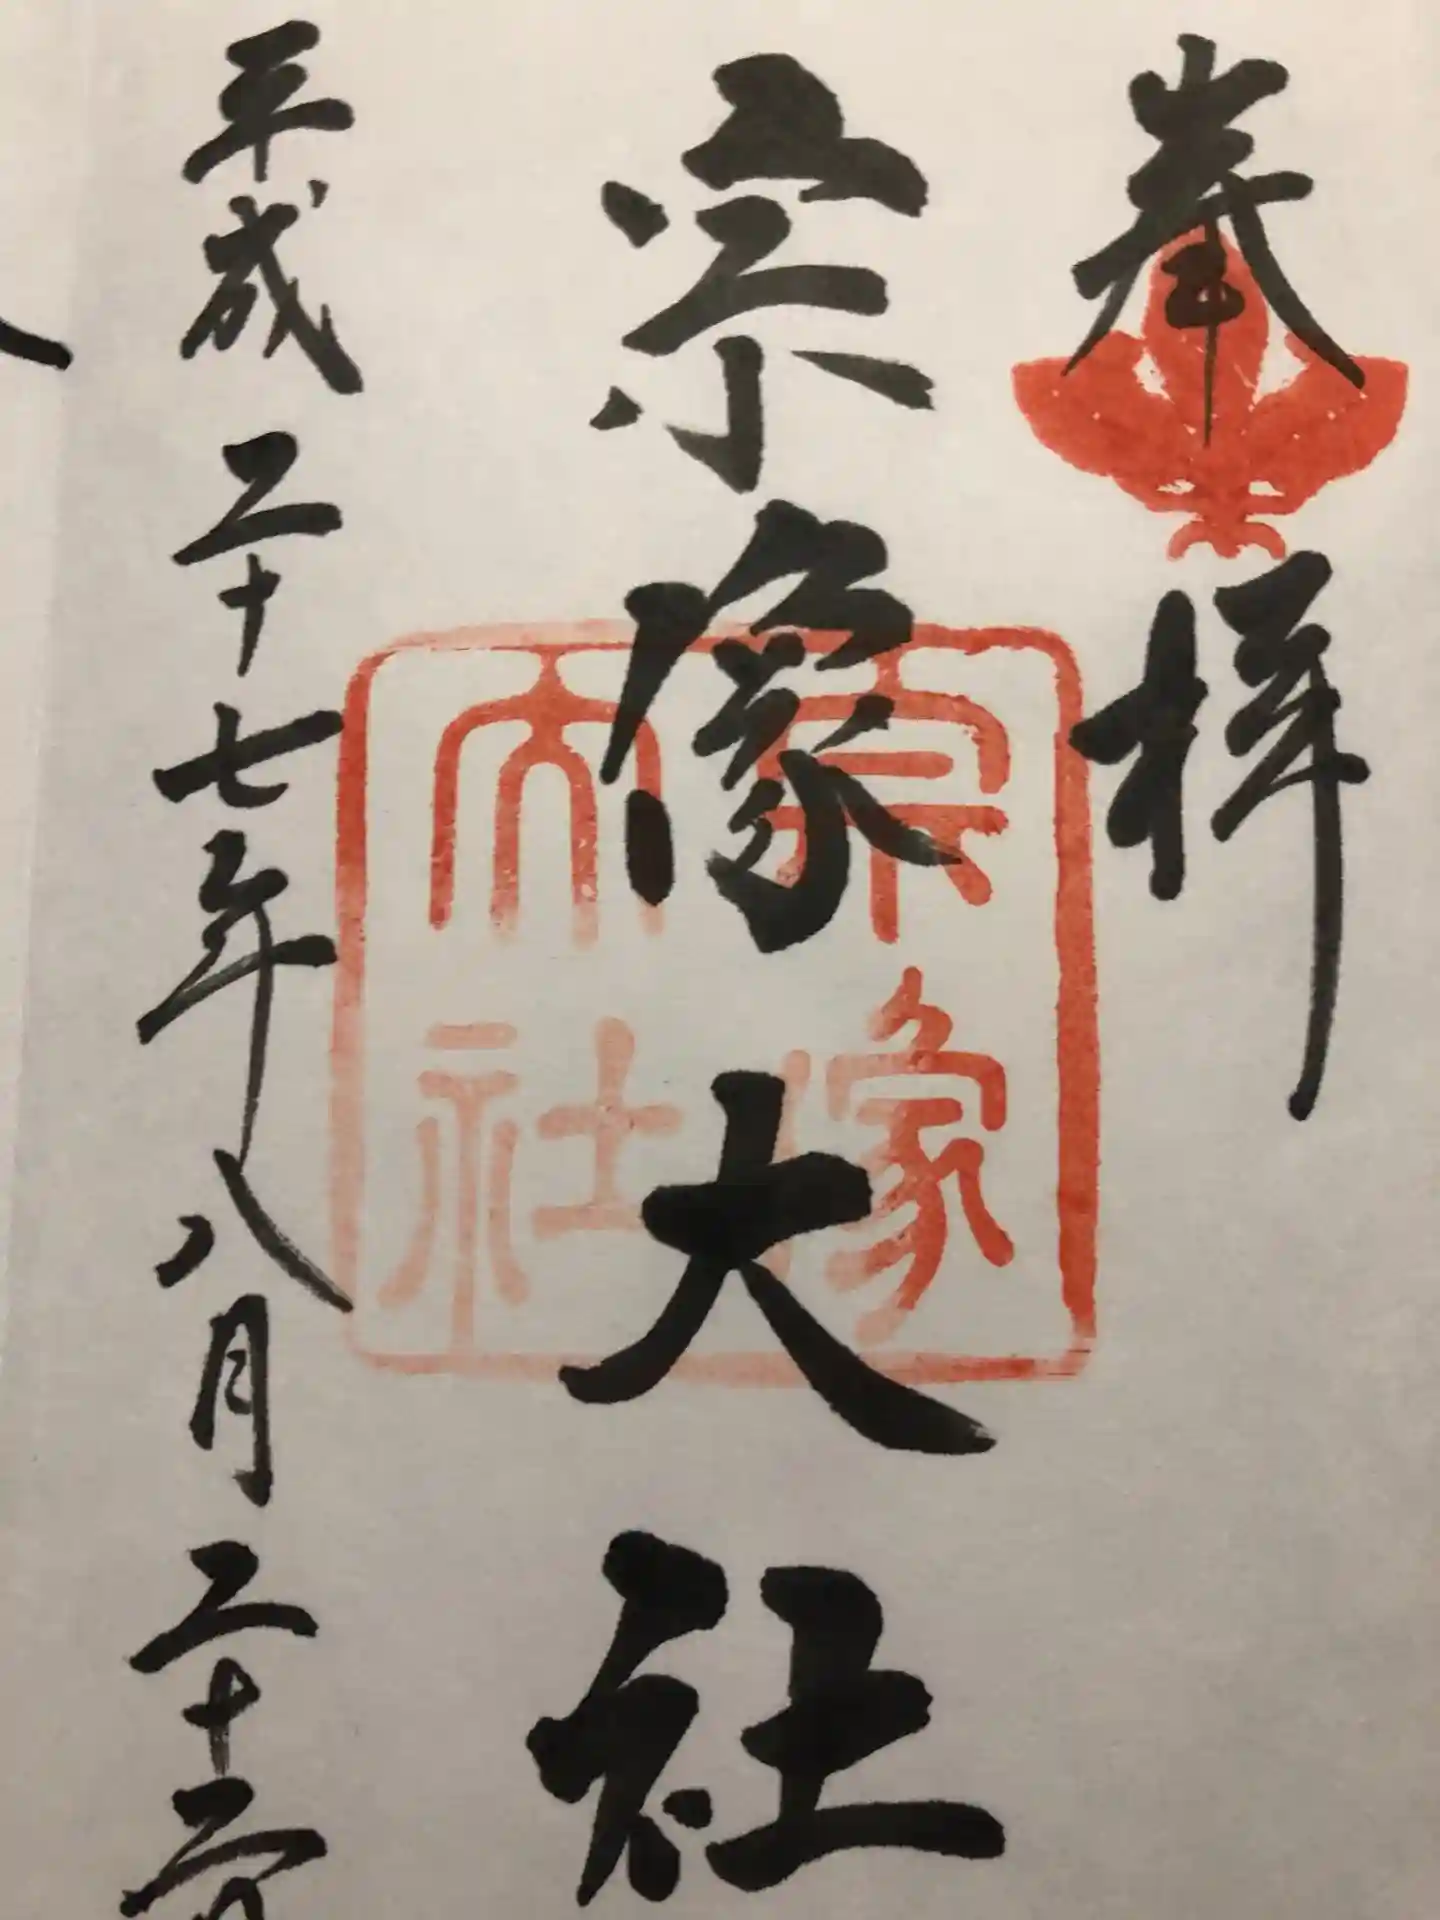 奉拝
宗像大社
宗像
大社
平成二十七年八月二十二